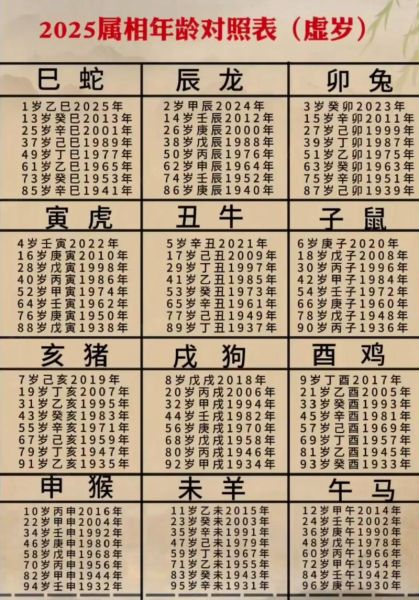 2025属相年龄对照表（虚岁）
巳蛇
1岁乙巳2025年
13岁癸巳2013年
25岁辛巳2001年
37岁己巳1989年
49岁丁巳1977年
61岁乙巳1965年
73岁癸巳1953年
85岁辛巳1941年
辰龙
2岁甲辰2024年
14岁壬辰2012年
26岁庚辰2000年
38岁戊辰1988年
50岁丙辰1976年
62岁甲辰1964年
74岁壬辰1952年
86岁庚辰1940年
卯兔
3岁癸卯2023年
15岁辛卯2011年
27岁己卯1999年
39岁丁卯1987年
51岁乙卯1975年
63岁癸卯1963年
75岁辛卯1951年
87岁己卯1939年
寅虎
4岁壬寅2022年
16岁庚寅2010年
28岁戊寅1998年
40岁丙寅1986年
52岁甲寅1974年
64岁壬寅1962年
76岁庚寅1950年
88岁戊寅1938年
丑牛
5岁辛丑2021年
17岁己丑2009年
29岁丁丑1997年
41岁乙丑1985年
53岁癸丑1973年
65岁辛丑1961年
77岁己丑1949年
89岁丁丑1937年
子鼠
6岁庚子2020年
18岁戊子2008年
30岁丙子1996年
42岁甲子1984年
54岁壬子1972年
66岁庚子1960年
78岁戊子1948年
90岁丙子1936年
亥猪
7岁己亥2019年
19岁丁亥2007年
31岁乙亥1995年
43岁癸亥1983年
55岁辛亥1971年
67岁己亥1959年
79岁丁亥1947年
91岁乙亥1935年
戌狗
8岁戊戌2018年
20岁丙戌2006年
32岁甲戌1994年
44岁壬戌1982年
56岁庚戌1970年
68岁戊戌1958年
80岁丙戌1946年
92岁甲戌1934年
酉鸡
9岁丁酉2017年
21岁乙酉2005年
33岁癸酉1993年
45岁辛酉1981年
57岁己酉1969年
69岁丁酉1957年
81岁乙酉1945年
93岁癸酉1933年
申猴
10岁丙申2016年
22岁甲申2004年
34岁壬申1992年
46岁庚申1980年
58岁戊申1968年
70岁丙申1956年
82岁甲申1944年
94岁壬申1932年
未羊
11岁乙未2015年
23岁癸未2003年
35岁辛未1991年
47岁己未1979年
59岁丁未1967年
71岁乙未1955年
83岁癸未1943年
95岁辛未1931年
午马
12岁甲午2014年
24岁壬午2002年
36岁庚午1990年
48岁戊午1978年
60岁丙午1966年
72岁甲午1954年
84岁壬午1942年
96岁庚午1930年